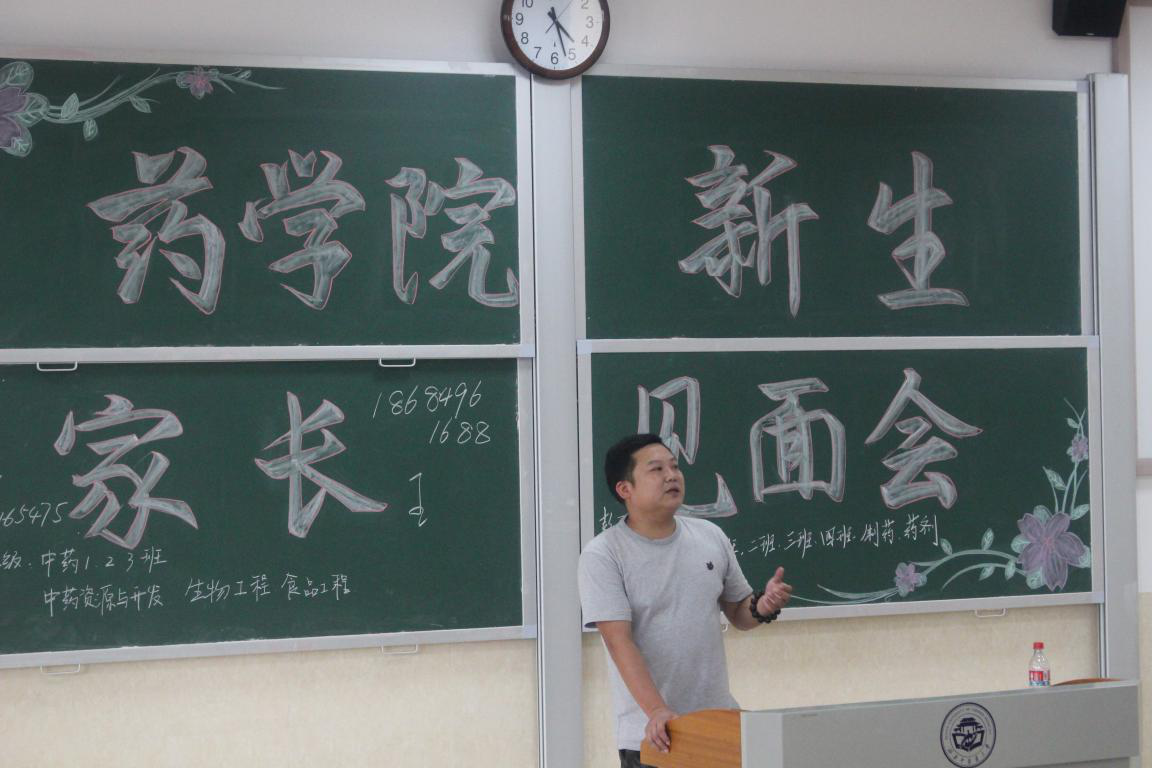 药学院 新生
家长 见面会
1868496
1688
65475
级.中药1.2 3班
中药资源与开发 生物工程 食品工程
二班.三班.四班.制药.药剂
10 2 9 3 8 4 7 6 5